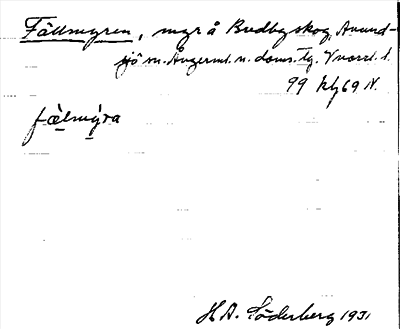 Fällmyren, myr å Budbyskog, Anund-
sjö sn. Ångerml. n. doms. tg. Vnorrl. l.
99 kbl 69 N.
fälmýra
H A. Söderberg 1931